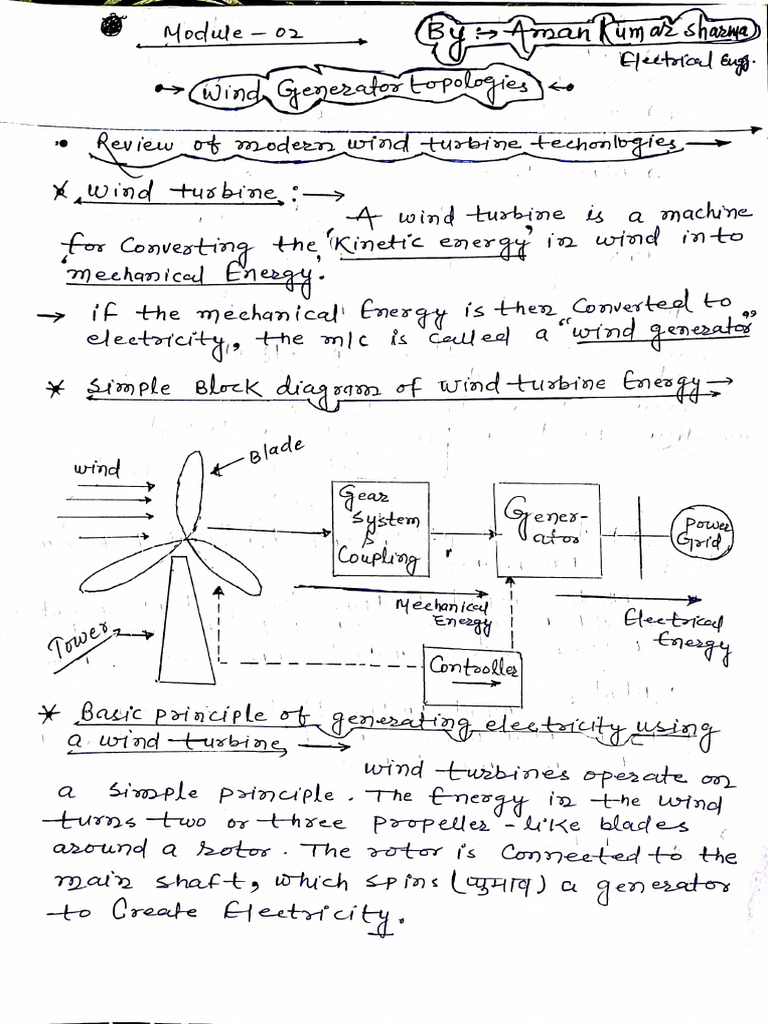 Module - 02
By :- Aman Kumar Sharma
Electrical Engg.
Wind Generator topologies
• Review of modern wind turbine techonlogies
* Wind turbine :→
A wind turbine is a machine
for converting the 'Kinetic energy' in wind into
'mechanical Energy.
→ if the mechanical Energy is then converted to
electricity, the m/c is called a "wind generator"
* Simple Block diagram of wind turbine Energy →
wind
Blade
Gear
System
&
Coupling
Gener-
ator
Power
Grid
Mechanical
Energy
Electrical
Energy
Tower
Controller
* Basic principle of generating electricity using
a wind turbine →
wind turbines operate on
a simple principle. The Energy in the wind
turns two or three propeller-like blades
around a rotor. The rotor is connected to the
main shaft, which spins (घुमाव) a generator
to Create Electricity.